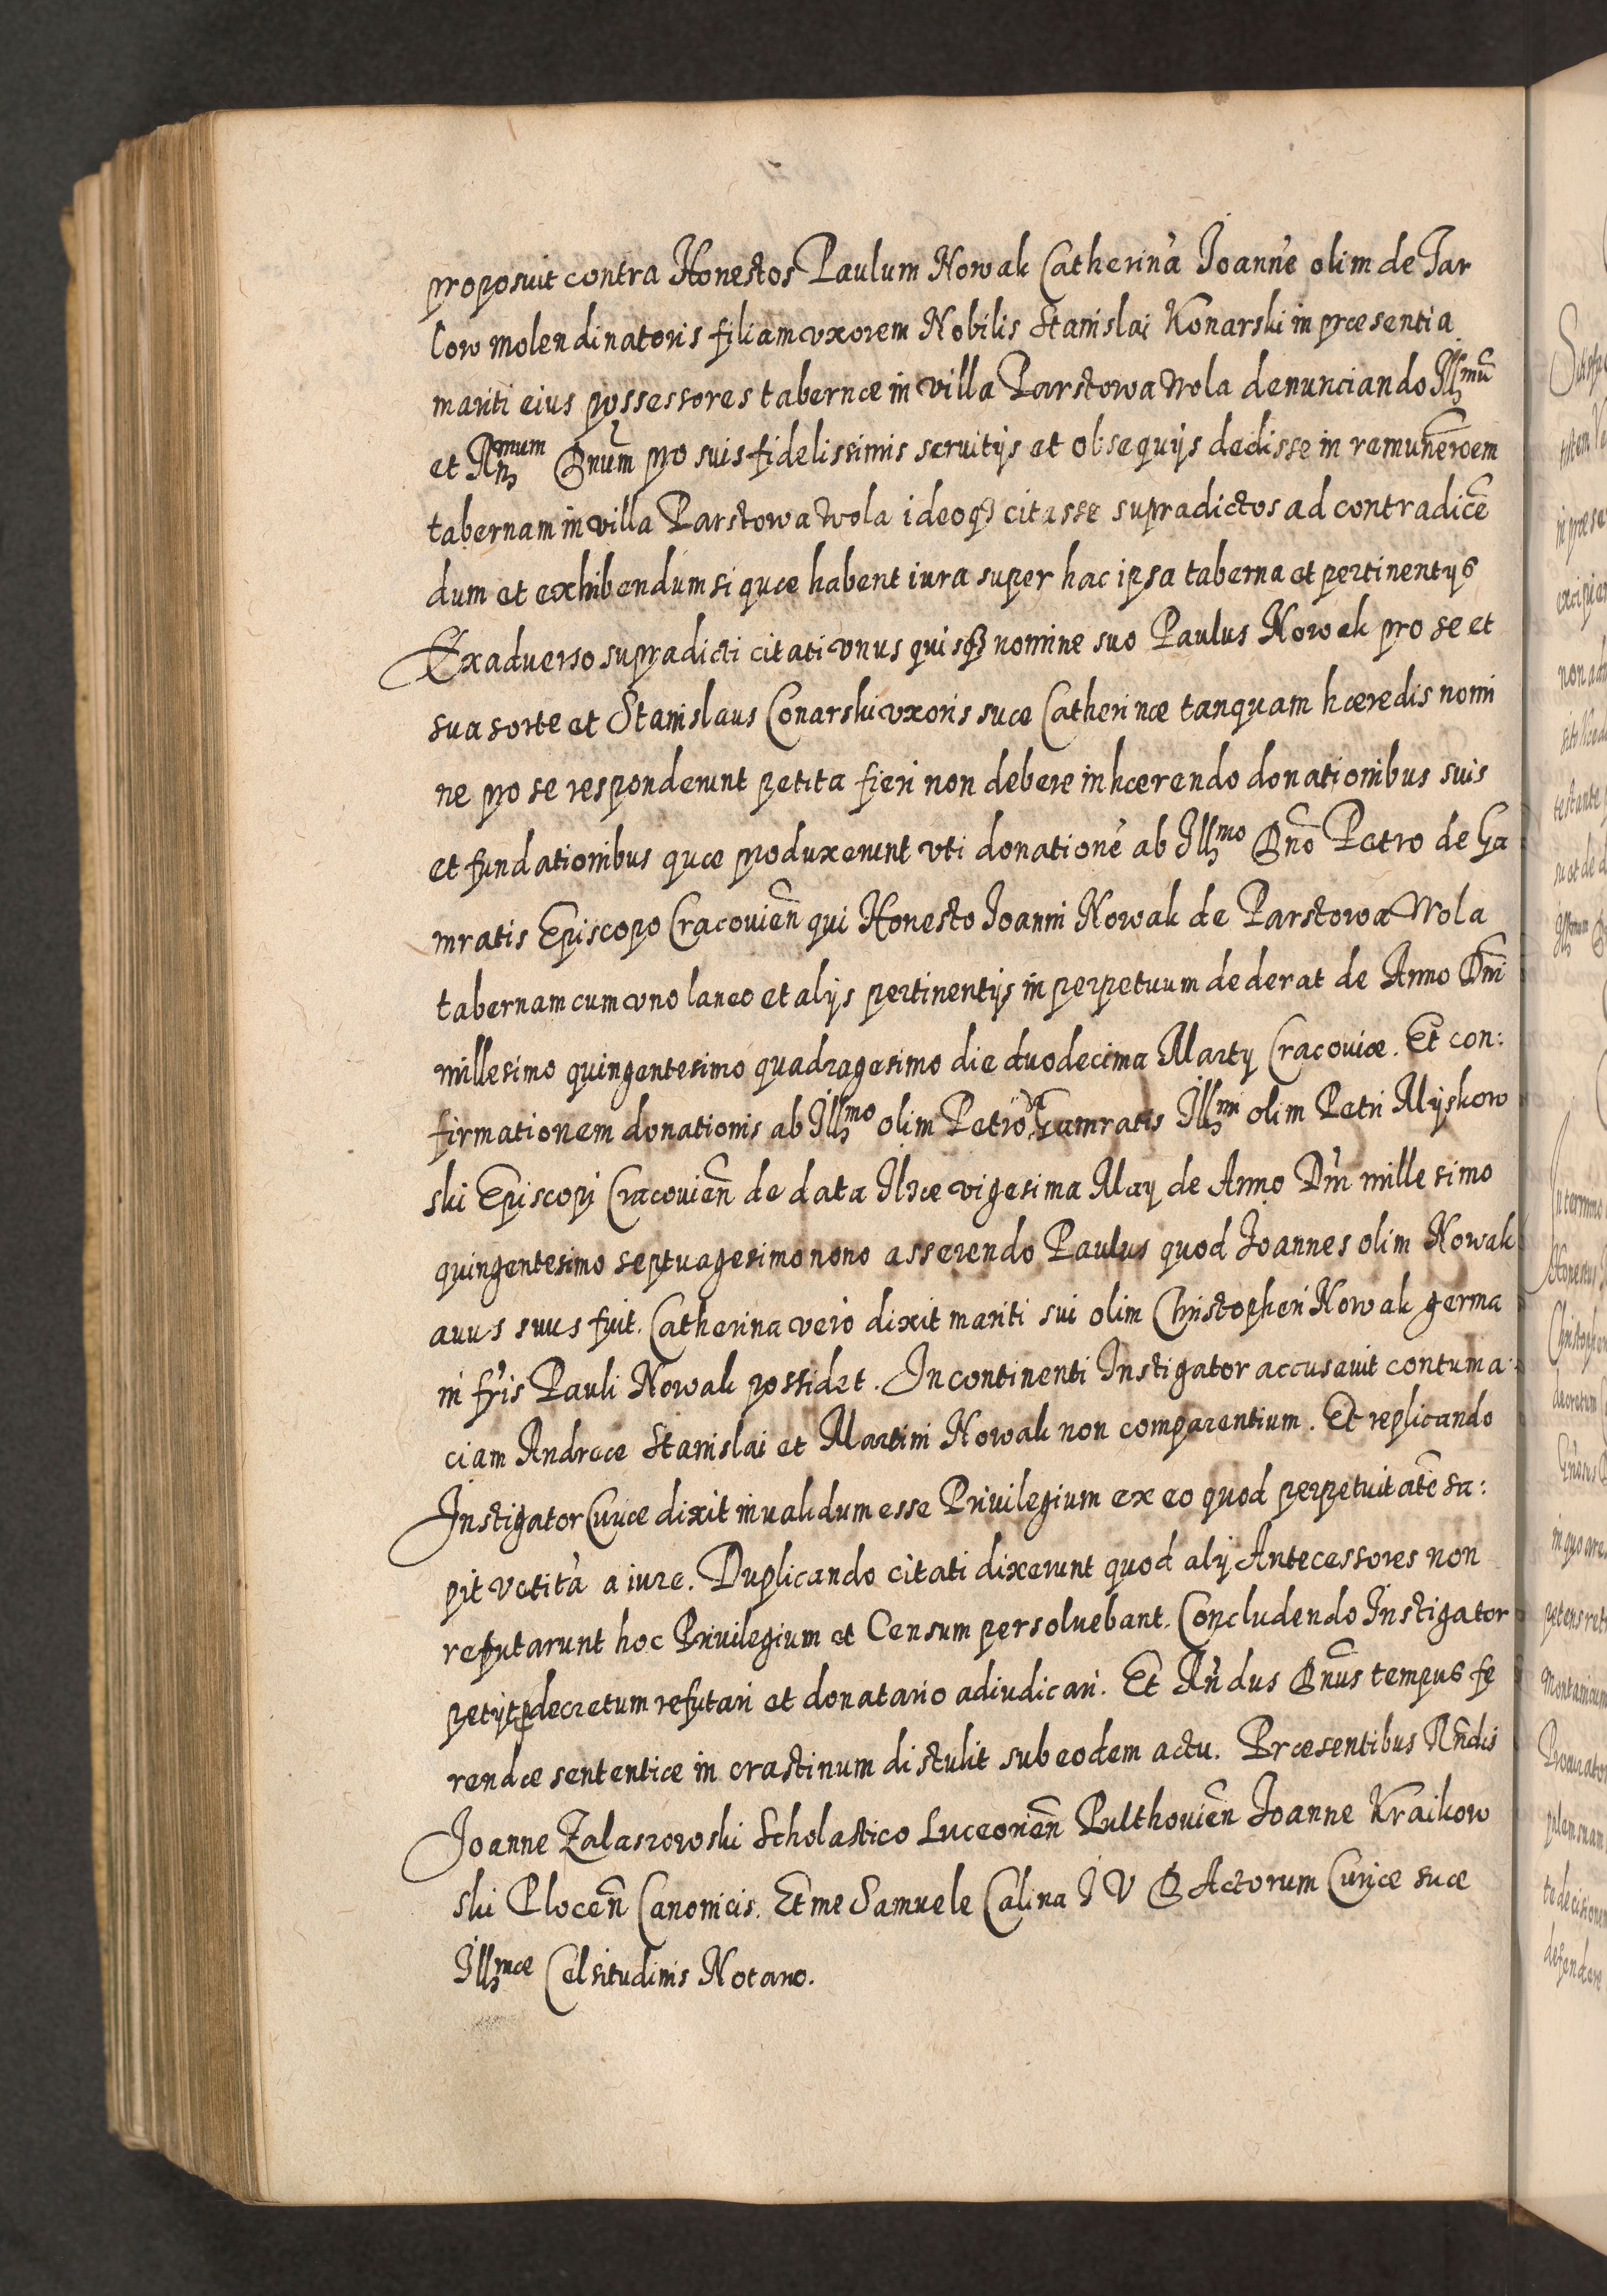 proposuit contra Honestos Paulum Nowak Catherinā Ioannē olim de Iar
low molendinatoris filiam vxorem Nobilis Stanislai Konarski in præsentia
mariti eius possessores tabernæ in villa Parstowa Wola denunciando Illmū
et Rñmum Dnūm pro suis fidelissimis seruitÿs et obsequÿs dedisse in remuneroem
tabernam in villa Parstowa Wola ideoqȝ citasse supradictos ad contradicē
dum et exhibendum si quæ habent iura super hac ipsa taberna et pertinentÿs
Ex aduerso supradicti citati vnus quisqȝ nomine suo Paulus Nowak pro se et
sua sorte et Stanislaus Conarski vxoris suæ Catherinæ tanquam hæredis nomi
ne pro se responderunt petita fieri non debere inhærendo donationibus suis
et fundationibus quæ produxerunt vti donationē ab Illmo Dnō Petro de Ga
mratis Episcopo Cracouieñ qui Honesto Ioanni Nowak de Parstowa Wola
tabernam cum vno laneo et alÿs pertinentÿs in perpetuum dederat de Anno Dñi
millesimo quingentesimo quadragesimo die duodecima Martÿ Cracouiæ. Et con:
firmationem donationis ab Illmo olim Petro Gamratis Illmi olim Petri Mÿskow
ski Episcopi Cracouieñ de data Ilzæ vigesima Maÿ de Anno Dñi millesimo
quingentesimo septuagesimo nono asserendo Paulus quod Ioannes olim Nowak
auus suus fuit. Catherina vero dixit mariti sui olim Christopheri Nowak germa
ni fr̃is Pauli Nowak possidet. In continenti Instigator accusauit contuma:
ciam Andreæ Stanislai et Martini Nowak non comparentium. Et replicando
Instigator Curiæ dixit inualidum esse Priuilegium ex eo quod perpetuitatē sa:
pit vetitā a iure. Duplicando citati dixerunt quod alÿ Antecessores non
refutarunt hoc Priuilegium et Censum persoluebant. Concludendo Instigator
petÿt ꝑ decretum refutari et donatario adiudicari. Et Rñdus Dnūs tempus fe
rendæ sententiæ in crastinum distulit sub eodem actu. Præsentibus Rñdis
Ioanne Zalaszowski Scholastico Luceorieñ Pulthouieñ Ioanne Kraikow
ski Ploceñ Canonicis. Et me Samuele Calina I V D Actorum Curiæ suæ
Illmæ Celsitudinis Notario.